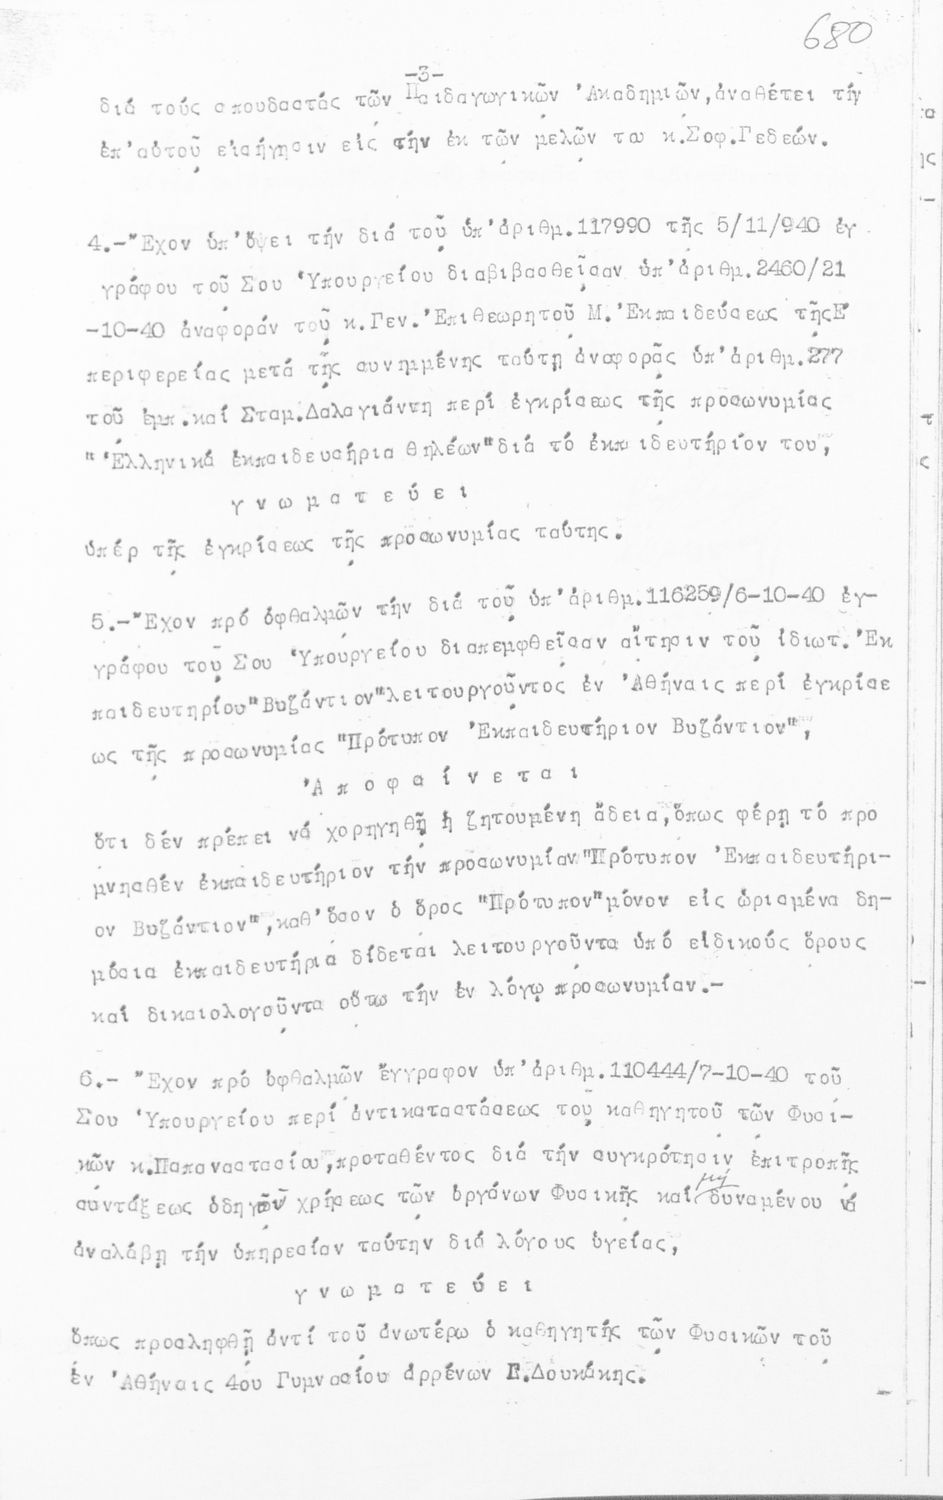 680
-3-
διά τούς σπουδαστάς τῶν Παιδαγωγικῶν Ἀκαδημιῶν,ἀναθέτει τήν
ἐπ'αὐτοῦ εἰσήγησιν εἰς τήν ἐκ τῶν μελῶν του κ.Σοφ.Γεδεών.
4.-Ἔχον ὑπ'ὄψει τήν διά τοῦ ὑπ'ἀριθμ.117990 τῆς 5/11/940 ἐγ
γράφου τοῦ Σου Ὑπουργείου διαβιβασθεῖσαν ὑπ'ἀριθμ.2460/21
-10-40 ἀναφοράν τοῦ κ.Γεν.Ἐπιθεωρητοῦ Μ.Ἐκπαιδεύσεως τῆςΕ'
περιφερείας μετά τῆς συνημμένης ταύτῃ ἀναφορᾶς ὑπ'ἀριθμ.277
τοῦ ἐμπ.καί Σταμ.Δαλαγιάννη περί ἐγκρίσεως τῆς προσωνυμίας
"Ἑλληνικά ἐκπαιδευσήρια θηλέων"διά τό ἐκπαιδευτήριόν του,
γνωματεύει
ὑπέρ τῆς ἐγκρίσεως τῆς προσωνυμίας ταύτης.
5.-Ἔχον πρό ὀφθαλμῶν τήν διά τοῦ ὑπ'ἀριθμ.116259/6-10-40 ἐγ-
γράφου τοῦ Σου Ὑπουργείου διαπεμφθεῖσαν αἴτησιν τοῦ ἰδιωτ.Ἐκ
παιδευτηρίου"Βυζάντιον"λειτουργοῦντος ἐν Ἀθήναις περί ἐγκρίσε
ως τῆς προσωνυμίας "Πρότυπον Ἐκπαιδευτήριον Βυζάντιον",
Ἀποφαίνεται
ὅτι δέν πρέπει νά χορηγηθῇ ἡ ζητουμένη ἄδεια,ὅπως φέρῃ τό προ
μνησθέν ἐκπαιδευτήριον τήν προσωνυμίαν"Πρότυπον Ἐκπαιδευτήρι-
ον Βυζάντιον",καθ'ὅσον ὁ ὅρος "Πρότυπον"μόνον εἰς ὡρισμένα δη-
μόσια ἐκπαιδευτήριά δίδεται λειτουργοῦντα ὑπό εἰδικούς ὅρους
καί δικαιολογοῦντα οὕτω τήν ἐν λόγῳ προσωνυμίαν.-
6.- Ἔχον πρό ὀφθαλμῶν ἔγγραφον ὑπ'ἀριθμ.110444/7-10-40 τοῦ
Σου Ὑπουργείου περί ἀντικαταστάσεως τοῦ καθηγητοῦ τῶν Φυσι-
κῶν κ.Παπαναστασίου,προταθέντος διά τήν συγκρότησιν ἐπιτροπῆς
συντάξεως ὁδηγῶν χρήσεως τῶν ὀργάνων Φυσικῆς καί μή δυναμένου νά
ἀναλάβῃ τήν ὑπηρεσίαν ταύτην διά λόγους ὑγείας,
γνωματεύει
ὅπως προσληφθῇ ἀντί τοῦ ἀνωτέρω ὁ καθηγητής τῶν Φυσικῶν τοῦ
ἐν Ἀθήναις 4ου Γυμνασίου ἀρρένων Ε.Δουκάκης.